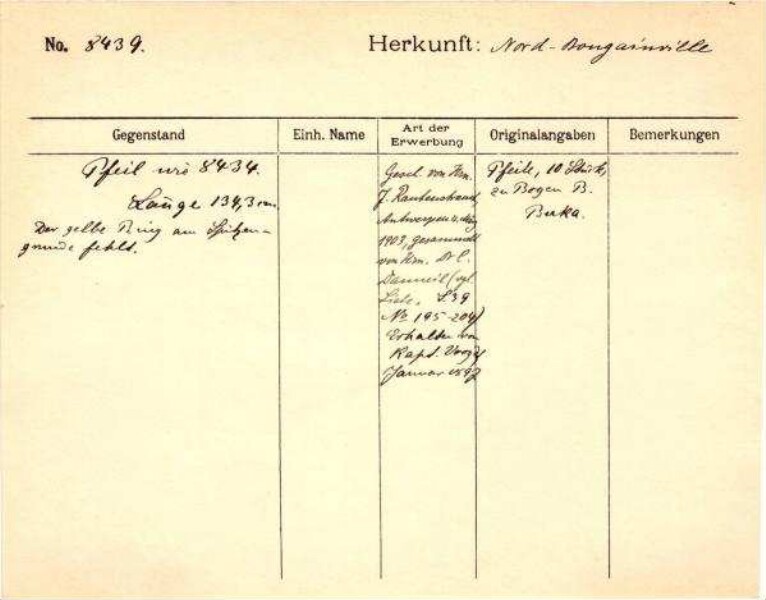 No. 8439.
Herkunft: Nord-Bougainville
Gegenstand
Einh. Name
Art der Erwerbung
Originalangaben
Bemerkungen
Pfeil wie 8434.
Länge 134,3 cm.
Der gelbe Ring am Spitzen-
grunde fehlt.
Gesch. von Hrn.
J. Rautenstrauch,
Antwerpen
1903, gesammelt
von Hrn. Dr C.
Danneil (vgl.
Liste, S 39
No 195-204)
Erhalten von
Kapt. Voogdt
Januar 1897
Pfeile, 10 Stück,
zu Bogen B.
Buka.